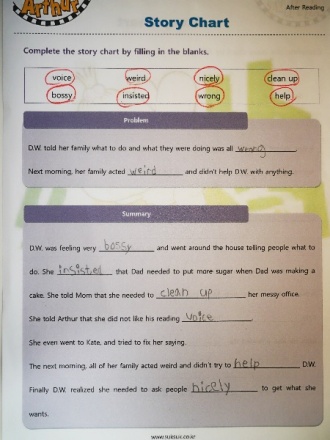 Arthur
After Reading
Story Chart
Complete the story chart by filling in the blanks.
voice weird nicely clean up
bossy insisted wrong help
Problem
D.W. told her family what to do and what they were doing was all wrong.
Next morning, her family acted weird and didn't help D.W. with anything.
Summary
D.W. was feeling very bossy and went around the house telling people what to
do. She insisted that Dad needed to put more sugar when Dad was making a
cake. She told Mom that she needed to clean up her messy office.
She told Arthur that she did not like his reading voice.
She even went to Kate, and tried to fix her saying.
The next morning, all of her family acted weird and didn't try to help D.W.
Finally D.W. realized she needed to ask people nicely to get what she
wants.